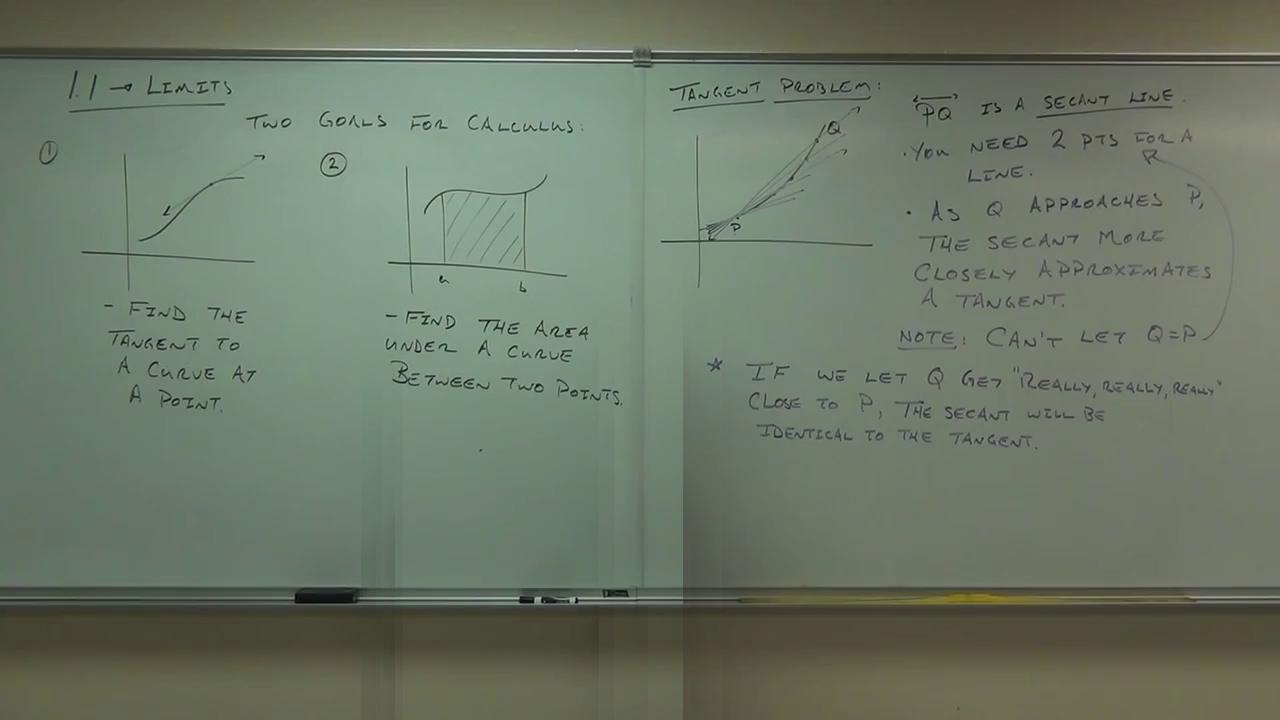 1.1 → LIMITS
TWO GOALS FOR CALCULUS:
①
②
a
b
- FIND THE
TANGENT TO
A CURVE AT
A POINT.
- FIND THE AREA
UNDER A CURVE
BETWEEN TWO POINTS.
TANGENT PROBLEM:
Q
P
PQ IS A SECANT LINE.
• YOU NEED 2 PTS FOR A
LINE.
• AS Q APPROACHES P,
THE SECANT MORE
CLOSELY APPROXIMATES
A TANGENT.
NOTE: CAN'T LET Q=P
* IF WE LET Q GET "REALLY, REALLY, REALLY"
CLOSE TO P, THE SECANT WILL BE
IDENTICAL TO THE TANGENT.